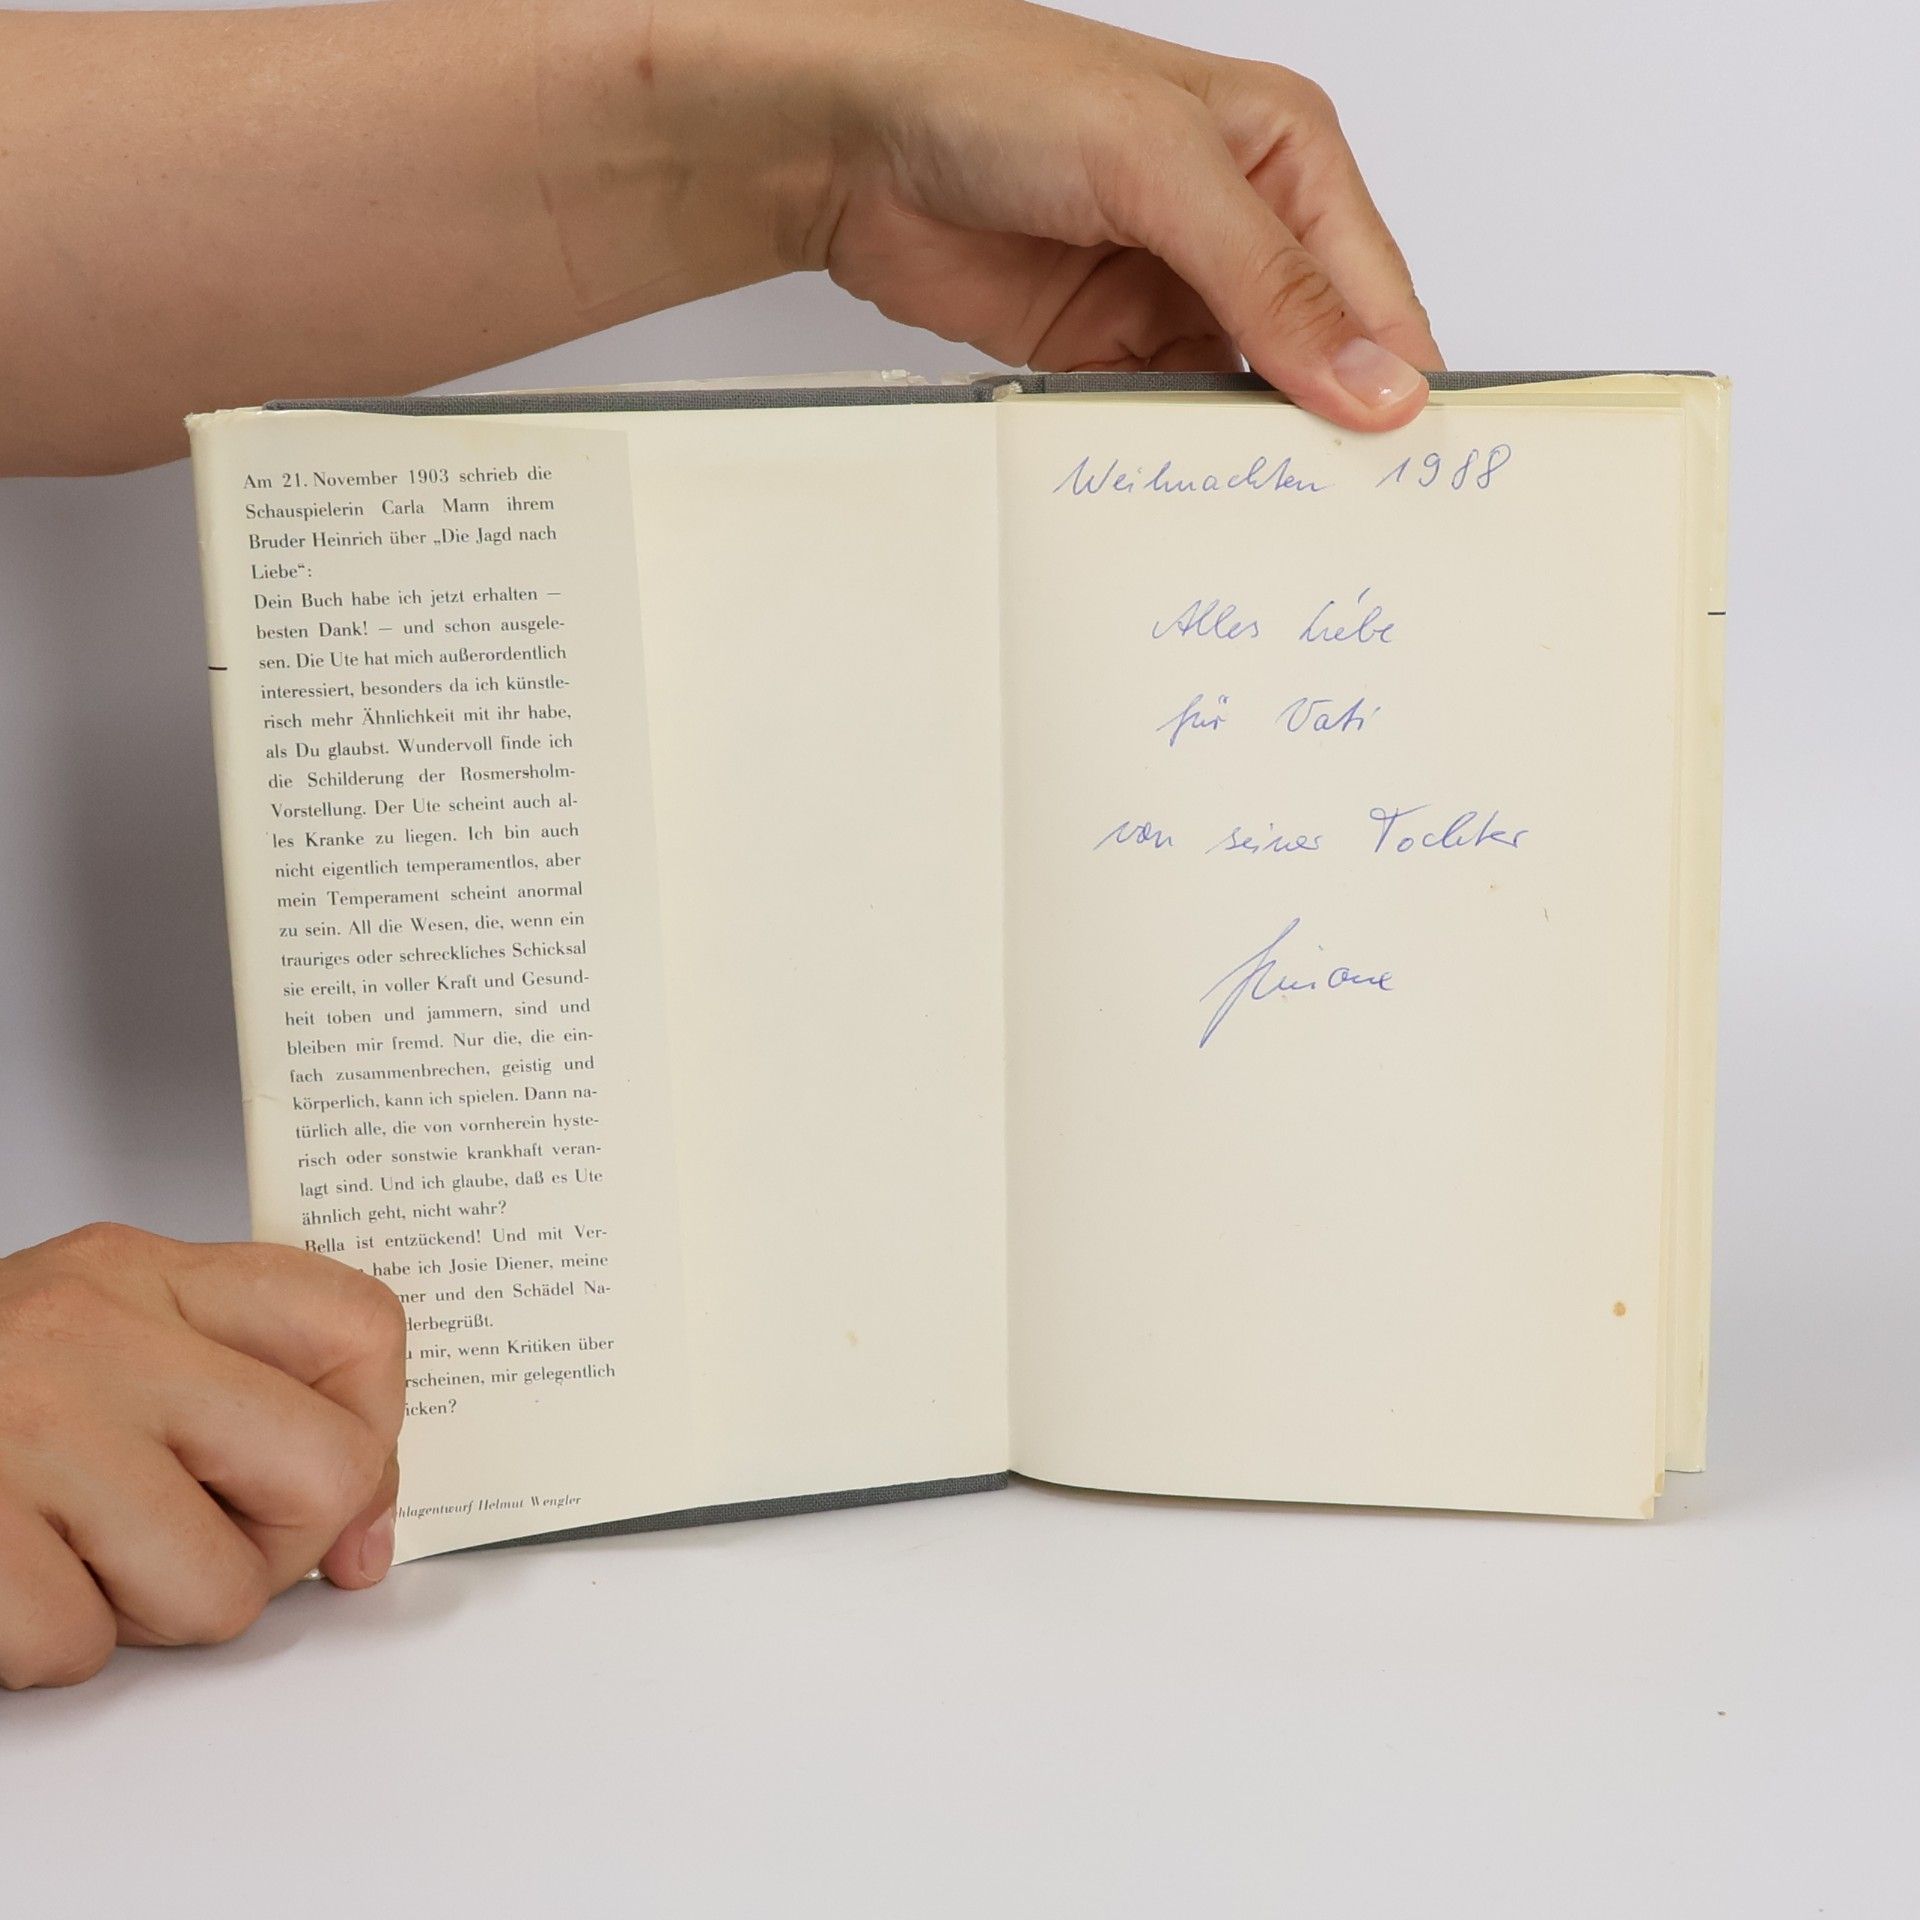 Am 21. November 1903 schrieb die
Schauspielerin Carla Mann ihrem
Bruder Heinrich über „Die Jagd nach
Liebe“:
Dein Buch habe ich jetzt erhalten —
besten Dank! — und schon ausgele-
sen. Die Ute hat mich außerordentlich
interessiert, besonders da ich künstle-
risch mehr Ähnlichkeit mit ihr habe,
als Du glaubst. Wundervoll finde ich
die Schilderung der Rosmersholm-
Vorstellung. Der Ute scheint auch al-
les Kranke zu liegen. Ich bin auch
nicht eigentlich temperamentlos, aber
mein Temperament scheint anormal
zu sein. All die Wesen, die, wenn ein
trauriges oder schreckliches Schicksal
sie ereilt, in voller Kraft und Gesund-
heit toben und jammern, sind und
bleiben mir fremd. Nur die, die ein-
fach zusammenbrechen, geistig und
körperlich, kann ich spielen. Dann na-
türlich alle, die von vornherein hyste-
risch oder sonstwie krankhaft veran-
lagt sind. Und ich glaube, daß es Ute
ähnlich geht, nicht wahr?
Bella ist entzückend! Und mit Ver-
habe ich Josie Diener, meine
mer und den Schädel Na-
derbegrüßt.
mir, wenn Kritiken über
rscheinen, mir gelegentlich
icken?
hlagentwurf Helmut Wengler
Weihnachten 1988
Alles Liebe
für Vati
von seiner Tochter
Simone